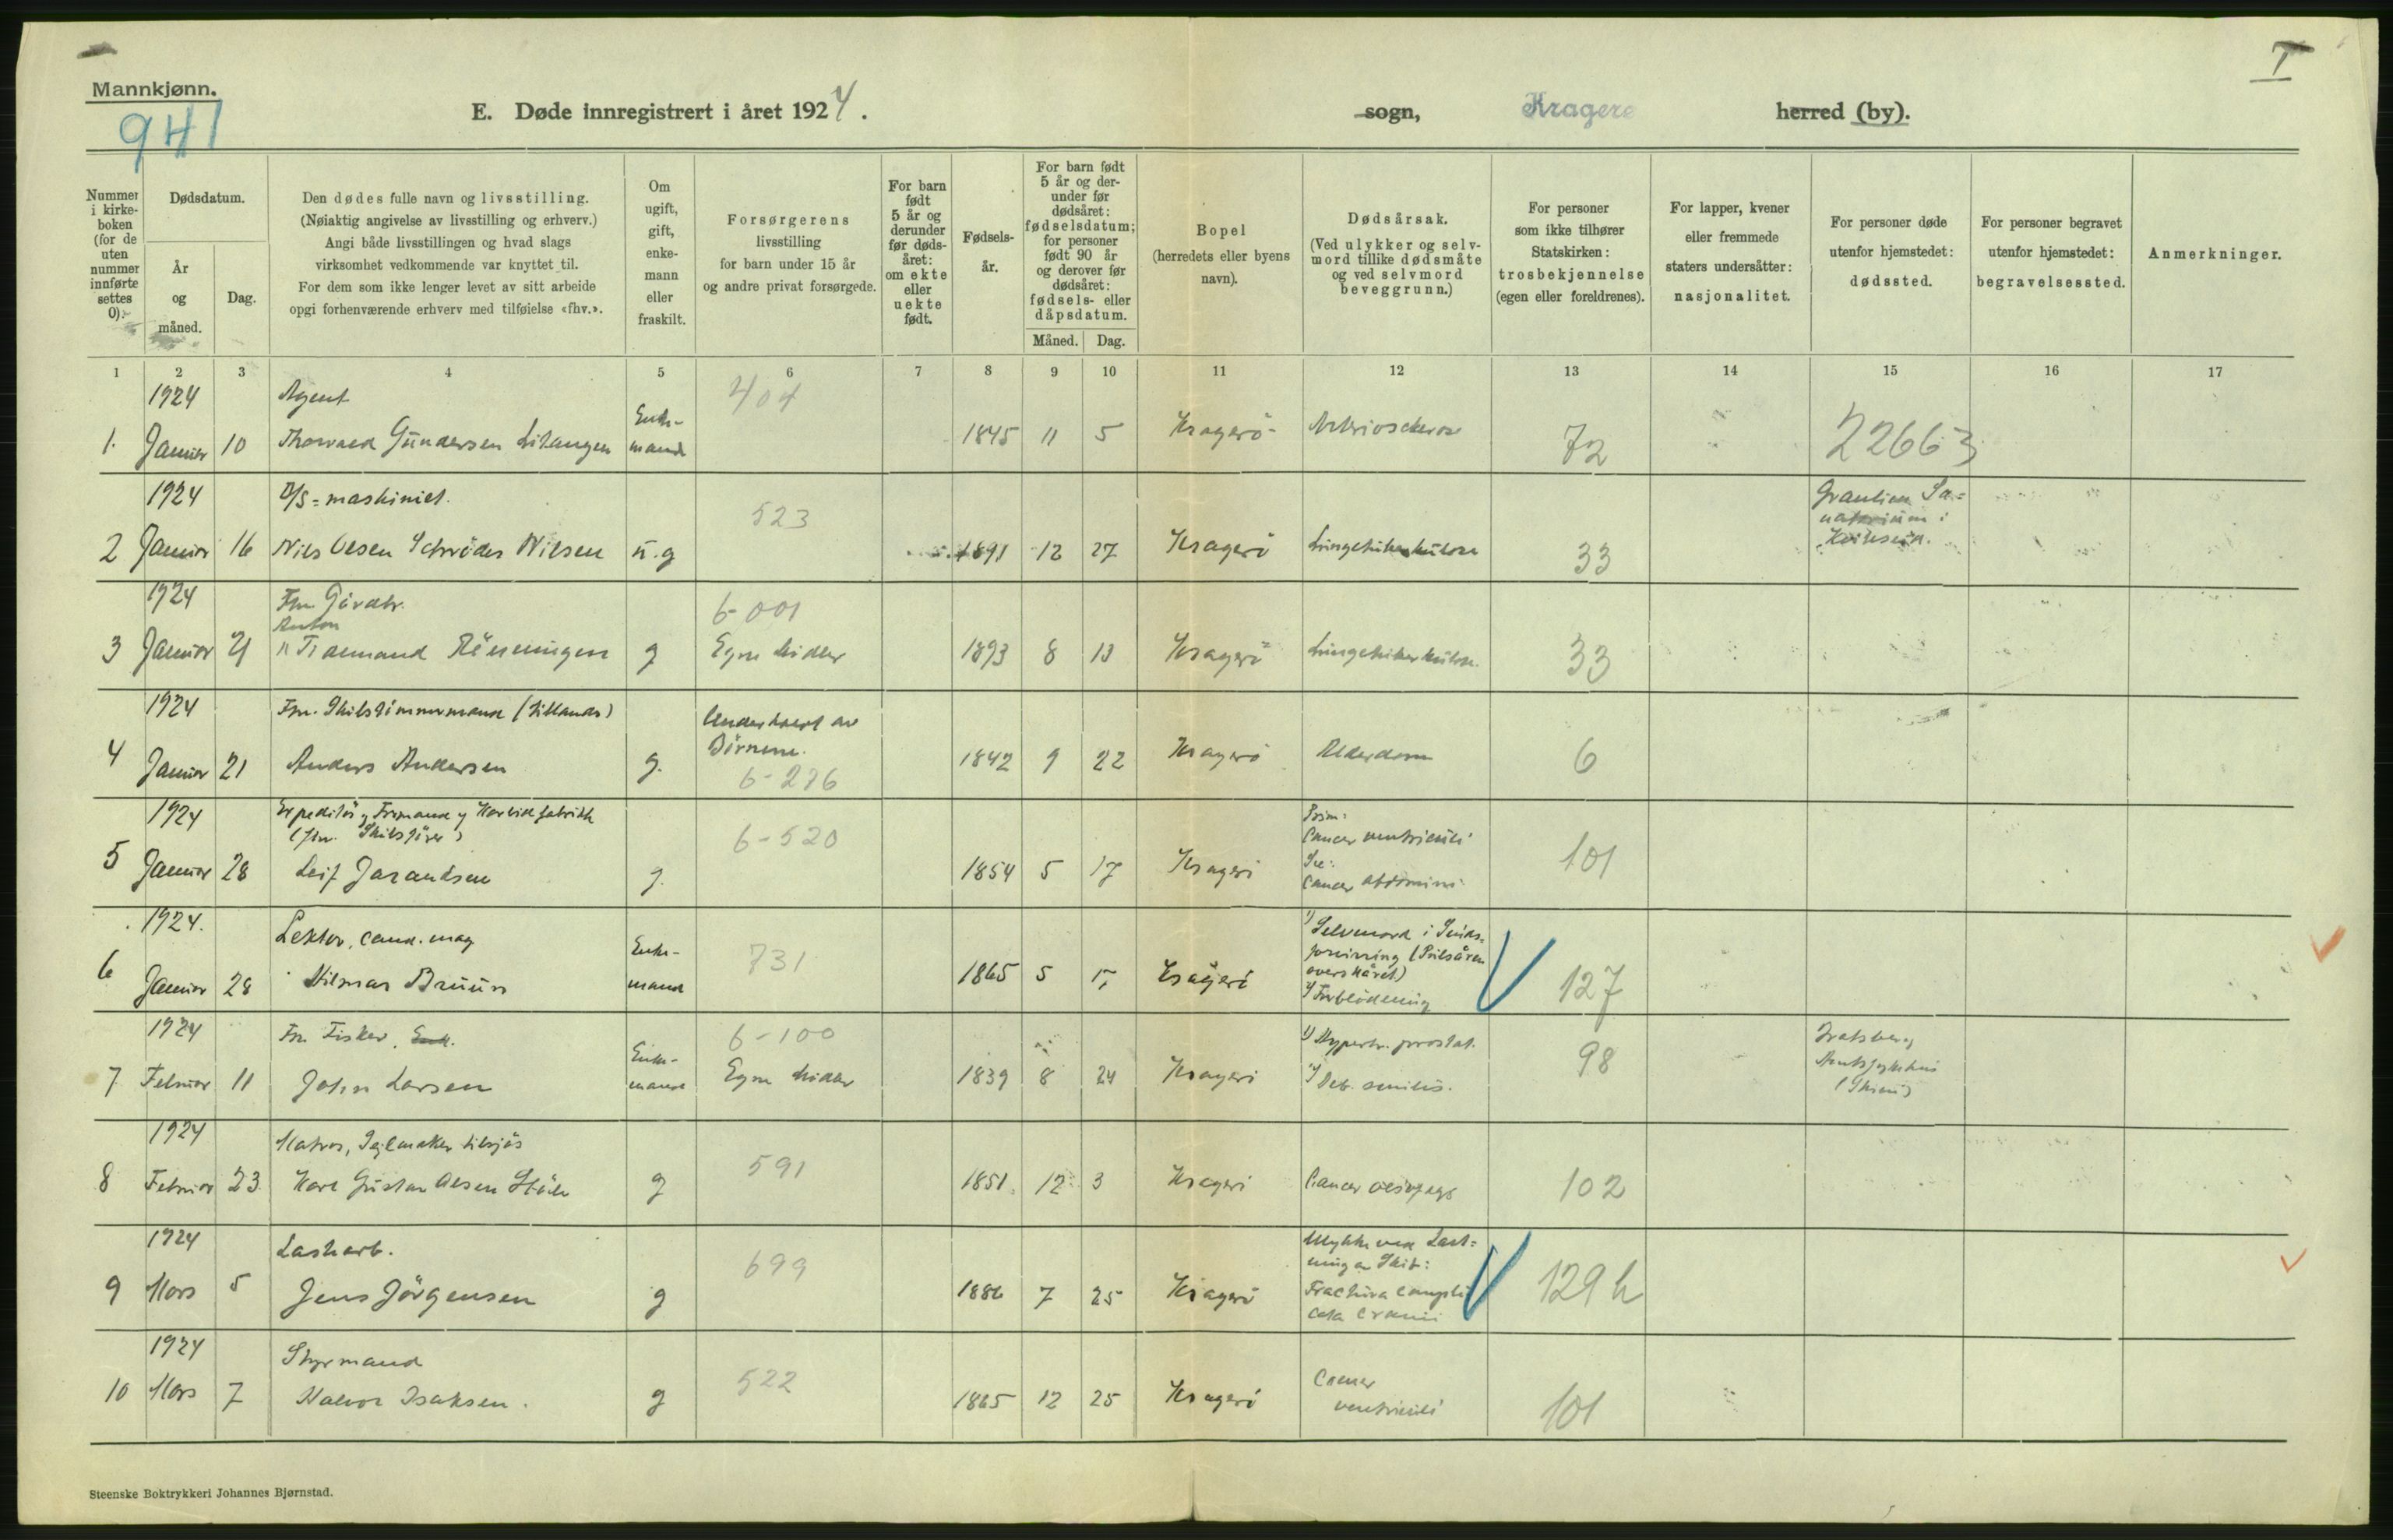 Mannkjønn.
941
E. Døde innregistrert i året 1924.
sogn,
Kragerø
herred (by).
I
Nummer i kirke-boken (for de uten nummer innførte settes 0).
Dødsdatum.
År og måned.
Dag.
Den dødes fulle navn og livsstilling.
(Nøiaktig angivelse av livsstilling og erhverv.)
Angi både livsstillingen og hvad slags
virksomhet vedkommende var knyttet til.
For dem som ikke lenger levet av sitt arbeide
opgi forhenværende erhverv med tilføielse «fhv.».
Om ugift, gift, enke-mann eller fraskilt.
Forsørgerens
livsstilling
for barn under 15 år
og andre privat forsørgede.
For barn født 5 år og derunder før døds-året: om ekte eller uekte født.
Fødsels-år.
For barn født 5 år og der-under før dødsåret: fødselsdatum; for personer født 90 år og derover før dødsåret: fødsels- eller dåpsdatum.
Måned.
Dag.
Bopel
(herredets eller byens
navn).
Dødsårsak.
(Ved ulykker og selv-
mord tillike dødsmåte
og ved selvmord
beveggrunn.)
For personer
som ikke tilhører
Statskirken:
trosbekjennelse
(egen eller foreldrenes).
For lapper, kvener
eller fremmede
staters undersåtter:
nasjonalitet.
For personer døde
utenfor hjemstedet:
dødssted.
For personer begravet
utenfor hjemstedet:
begravelsessted.
Anmerkninger.
1 2 3 4 5 6 7 8 9 10 11 12 13 14 15 16 17
1924 Agent 404
1. Januar 10 Thorvald Gundersen Enke-mand 1845 11 5 Kragerø Arteriosclerose 72 22663
1924 D/S=maskinist. 523
2 Januar 16 Nils Olsen Schrøder Nilsen u.g 1891 12 27 Kragerø Lungetuberkulose 33
Sa=
natorium i
1924 Fhv. Gårdbr. 6-001
Anton
3 Januar 21 g Egne Midler 1893 8 13 Kragerø Lungetuberkulose. 33
1924 Fhv. Skibstømmermand Underholdt av
Börnene.
4 Januar 21 Anders Andersen g. 6-276 1842 9 22 Kragerø Alderdom 6
1924 Expeditør, Formand y Karbidfabrikk
(fhv. Skibsfører) 6-520
5 Januar 28 Leif Jarandsen g. 1854 5 17 Kragerø
Prim:
Cancer ventriculi
Sec:
Cancer abdominis
101
1924. Lektor, cand. mag 731
6 Januar 28 Hilmar Bruun Enke-mand 1865 5 Kragerø
1) Selvmord i Sinds=
forvirring (Pulsåren
overskåret)
2) Forblödning
127
1924 Fhv. Fisker. Enk. 6-100
7 Februar 11 John Larsen Enke-mand Egne Midler 1839 8 24 Kragerø
1) Hypertr. prostat.
2) Deb. senilis.
98
Bratsberg
Amtssykehus
(Skien)
1924 Matros, Sejlmaker tilsjøs 591
8 Februar 23 Karl Gustav Olsen g 1851 12 3 Kragerø Cancer oesofags 102
1924 Lastearb. 699
9 Mars 5 Jens Jörgensen g 1886 7 25 Kragerø
Ulykke ved Last=
ning av Skib:
Fractura compli
cata cranii
129 h
1924 Styrmand 522
10 Mars 7 Halvor Isaksen. g 1865 12 25 Kragerø
Cancer
ventriculi
101
Steenske Boktrykkeri Johannes Bjørnstad.